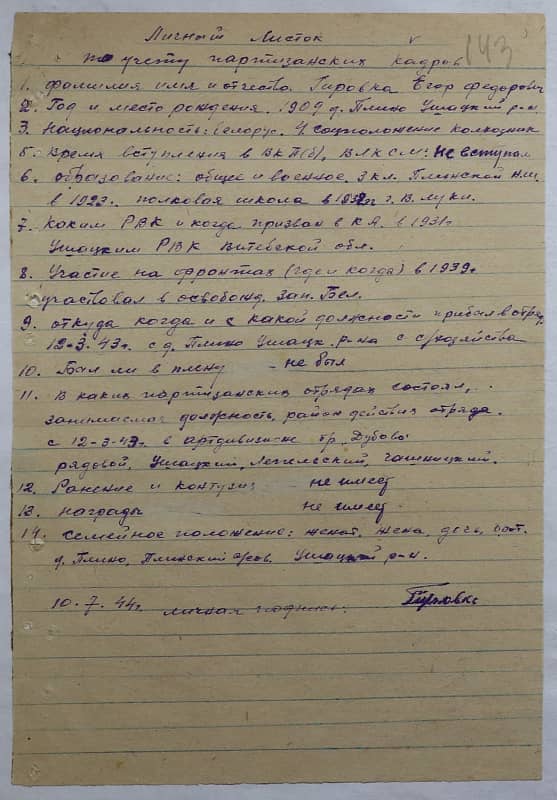 Личный Листок
143
по учету партизанских кадров
1. Фамилия имя и отчество. Гировка Егор Федорович
2. Год и место рождения. 1909 д. Плино Ушацкий р-н
3. Национальность: белорус. 4. соцположение колхозник
5. Время вступления в ВКП(б), ВЛКСМ: не вступал
6. образование: общее и военное. 3 кл. Плинской
в 1923г. полковая школа в 1932г г. В. Луки.
7. Коким РВК и когда призван в К.А. в 1931г
Ушацким РВК Витебской обл.
8. Участие на фронтах (где и когда) в 1939г
участвовал в освобожд. Зап. Бел.
9. откуда когда и с какой должности прибыл в отряд
12-3-43г. с д. Плино Ушацк. р-на с с/хозяйства
10. Был ли в плену - не был
11. В каких партизанских отрядах состоял,
занимаемая должность, район действия отряда.
с 12-3-43 в артдивизионе бр. Дубова
рядовой, Ушацкий, Лепельский, Чашницкий.
12. Ранение и контузия - не имеет
13. награды - не имеет.
14. семейное положение: женат, жена, дочь,
д. Плино, Плинский с/сов. Ушацкий р-н.
10.7.44г. личная подпись: Гировка